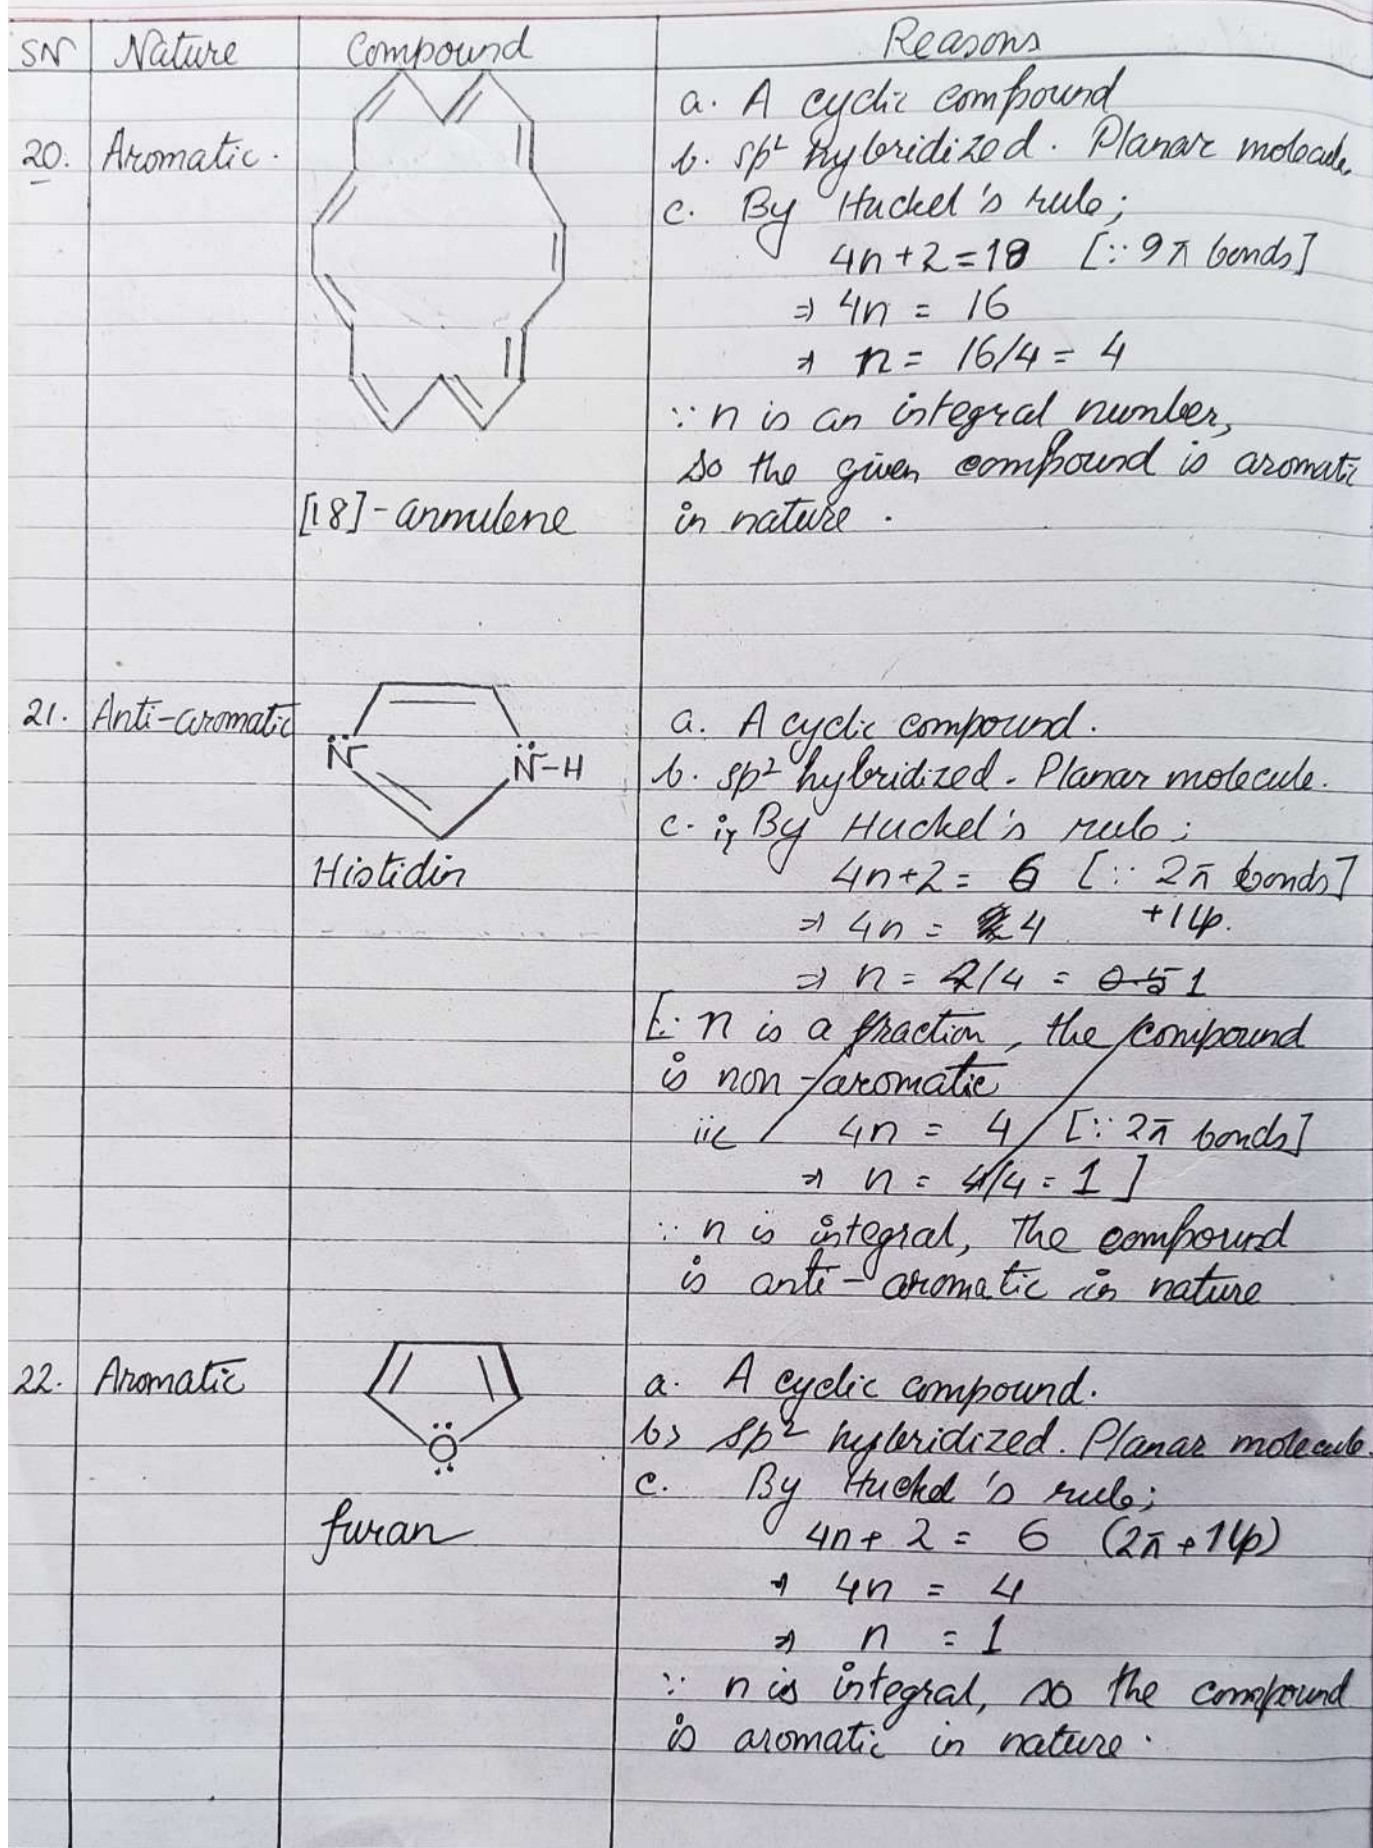 SN Nature Compound Reasons
a. A cyclic compound
20. Aromatic. b. sp² hybridized. Planar molecule.
c. By Huckel's rule;
4n+2=18 [∵ 9π bonds]
⇒ 4n = 16
⇒ n = 16/4 = 4
∵ n is an integral number,
so the given compound is aromatic
[18]-annulene in nature.
21. Anti-aromatic N̈ N̈-H a. A cyclic compound.
b. sp² hybridized. Planar molecule.
c. i, By Huckel's rule;
Histidin 4n+2 = 6 [∵ 2π bonds]
⇒ 4n = 4 +1lp.
⇒ n = 4/4 = 0.5 1
[∵ n is a fraction, the compound
is non-aromatic
ii 4n = 4 [∵ 2π bonds]
⇒ n = 4/4 = 1 ]
∵ n is integral, the compound
is anti-aromatic in nature
22. Aromatic O a. A cyclic compound.
b> sp² hybridized. Planar molecule.
c. By Huckel's rule;
furan 4n+2 = 6 (2π+1lp)
⇒ 4n = 4
⇒ n = 1
∵ n is integral, so the compound
is aromatic in nature.